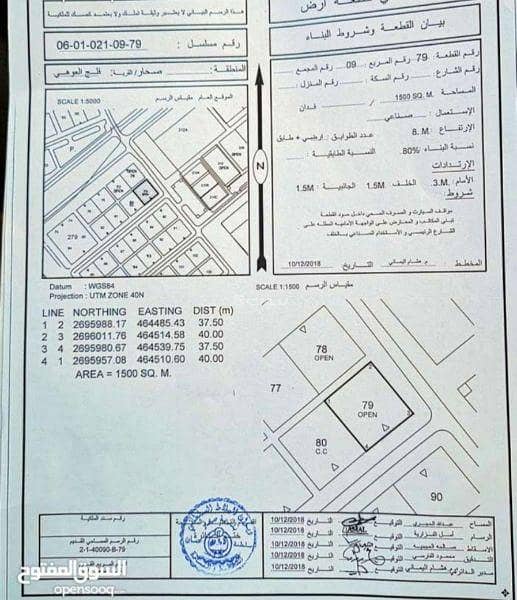 هذا الرسم البياني لا يعتبر وثيقة تملك ولا يعتمد كصك للملكية
رقم مسلسل : 06-01-021-09-79
المنطقة: صحار/ القرية: فلج العوهي
بيان القطعة وشروط البناء
رقم القطعة: 79 رقم المربع: 09 رقم المجمع
رقم الشارع: رقم السكة: رقم المنزل:
المساحة 1500 SQ. M. / فدان
الإستعمال: صناعي
الإرتفاع : 8. M عدد الطوابق: ارضي + طابق
نسبة البناء .80% النسبة الطابقية:
الإرتدادات
الأمام: 3.M الخلف 1.5M الجانبية: 1.5M
شروط:
مواقف السيارات و الصرف الصحي داخل حدود القطعة
تبنى المكاتب و المعارض على الواجهة الأمامية المطلة على
الشارع الرئيسي و الأستخدام الصناعي بالخلف
المخطط : م هشام اليماني التاريخ 10/12/2018
SCALE 1:5000 الموقع العام مقياس الرسم
P.
212A
212C
OPEN
279
N
SCALE 1:1500 مقياس الرسم
Datum : WGS84
Projection : UTM ZONE 40N
LINE NORTHING EASTING DIST (m)
1 2 2695988.17 464485.43 37.50
2 3 2696011.76 464514.58 40.00
3 4 2695980.67 464539.75 37.50
4 1 2695957.08 464510.60 40.00
AREA = 1500 SQ. M.
78
OPEN
77
79
OPEN
80
C.C
90
رقم سند الملكية
رقم الرسم المساحي القديم
2-1-40090-B-79
المساح التوقيع التاريخ 10/12/2018
الرسام التوقيع التاريخ 10/12/2018
الإسقاط التوقيع التاريخ 10/12/2018
التدقيق التوقيع التاريخ 10/12/2018
مدير الدائرة هشام اليماني التوقيع التاريخ 10/12/2018
السوق المفتوح
opensooq.com